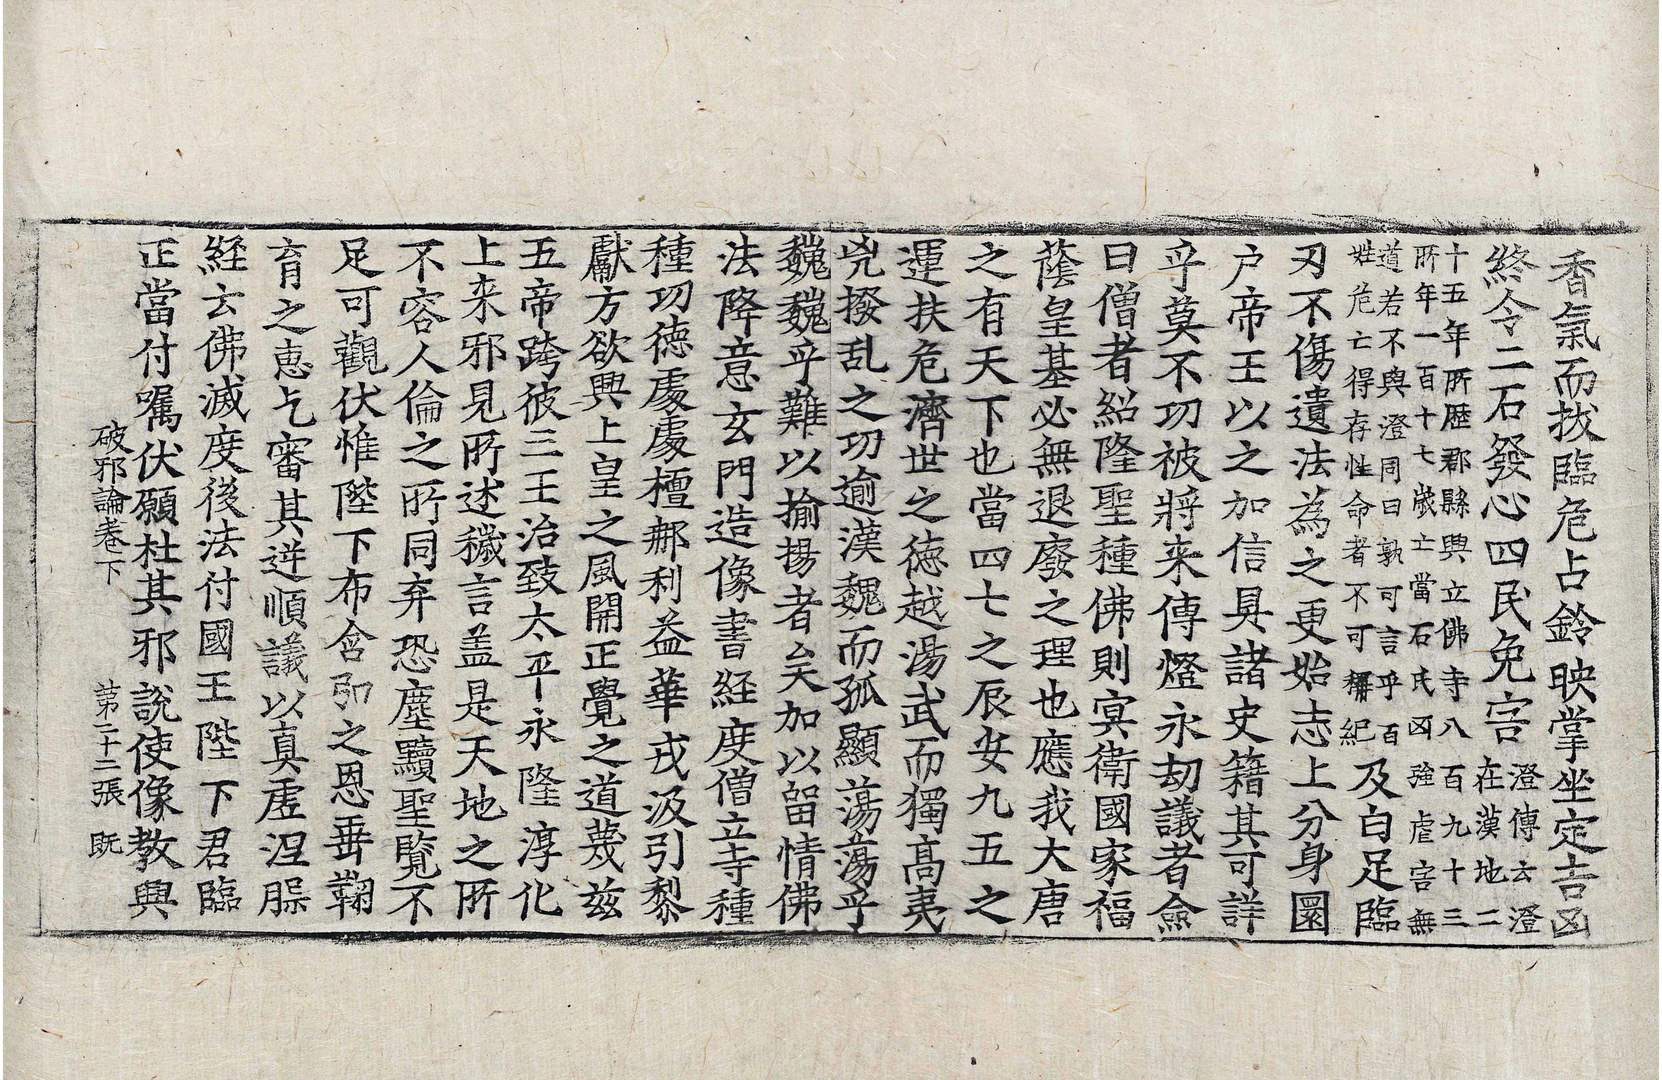 香氣而拔臨危占鈴映掌坐定吉凶
終令二石發心四民免害
澄傳云澄
在漢地二
十五年所歴郡縣興立佛寺八百九十三
所年一百十七歲亡當石氏凶強虐害無
道若不與澄同日孰可言乎百
姓危亡得存性命者不可稱紀
及白足臨
刃不傷遺法為之更始志上分身圜
户帝王以之加信具諸史籍其可詳
乎莫不功被將来傳燈永劫議者僉
曰僧者紹隆聖種佛則冥衛國家福
蔭皇基必無退廢之理也應我大唐
之有天下也當四七之辰安九五之
運扶危濟世之德越湯武而獨高夷
兇撥乱之功逾漢魏而孤顯蕩蕩乎
巍巍乎難以揄揚者矣加以留情佛
法降意玄門造像書経度僧立寺種
種功德處處檀那利益華戎汲引黎
獻方欲興上皇之風開正覺之道蔑兹
五帝跨彼三王治致太平永隆淳化
上来邪見所述穢言盖是天地之所
不容人倫之所同弃恐塵黷聖覽不
足可觀伏惟陛下布含弘之恩垂鞠
育之恵乞審其逆順議以真虛涅
経云佛滅度後法付國王陛下君臨
正當付囑伏願杜其邪說使像教興
破邪論卷下 第二十二張 既